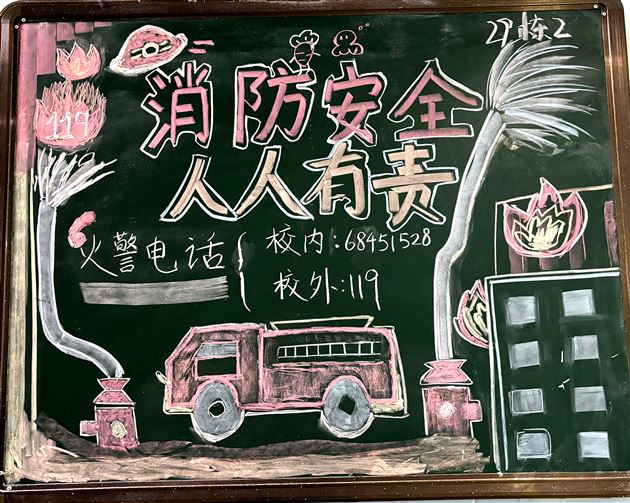 27栋2
119
消防安全
人人有责
火警电话
校内:68451528
校外:119